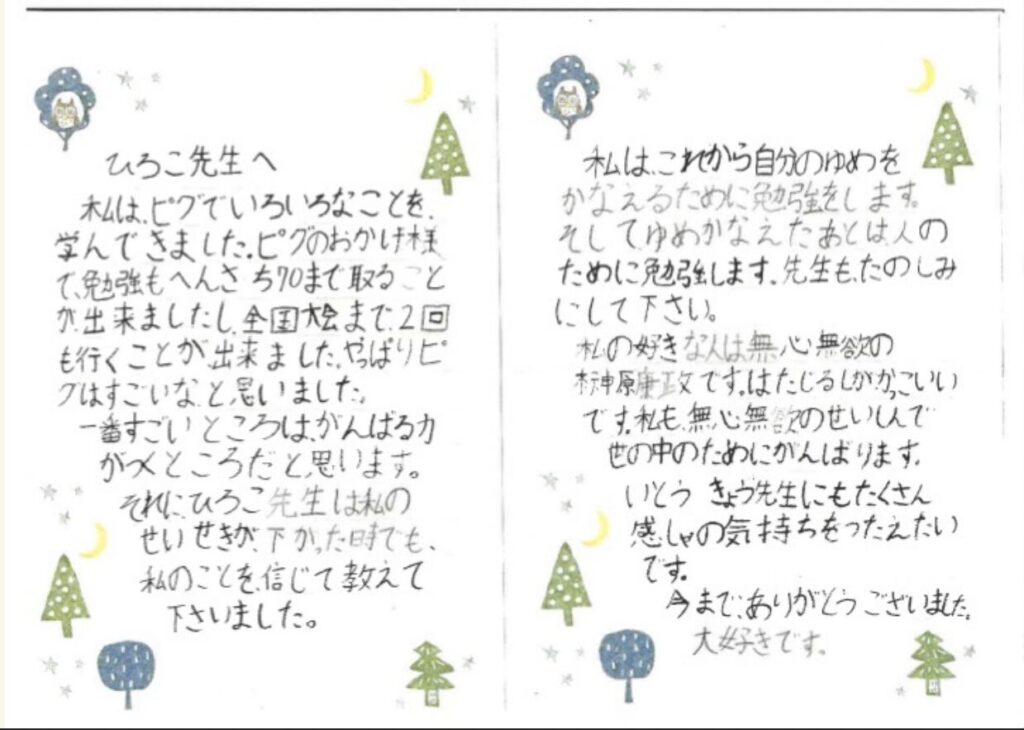 ひろこ先生へ
私は、ピグでいろいろなことを、
学んできました。ピグのおかげ様
で、勉強もへんさち70まで取ること
が、出来ましたし、全国大会まで、2回
も行くことが出来ました。やっぱりピ
グはすごいな、と思いました。
一番すごいところは、がんばる力
がつくところだと、思います。
それに、ひろこ先生は私の
せいせきが、下がった時でも、
私のことを、信じて教えて
下さいました。
私は、これから自分のゆめを
かなえるために勉強をします。
そして、ゆめかなえたあとは、人の
ために勉強します。先生も、たのしみ
にして下さい。
私の好きな人は無心無欲の
榊原康政です。はたじるしがかっこいい
です。私も、無心無欲のせいしんで
世の中のためにがんばります。
いとうきょう先生にもたくさん
感しゃの気持ちをつたえたい
です。
今まで、ありがとうございました。
大好きです。